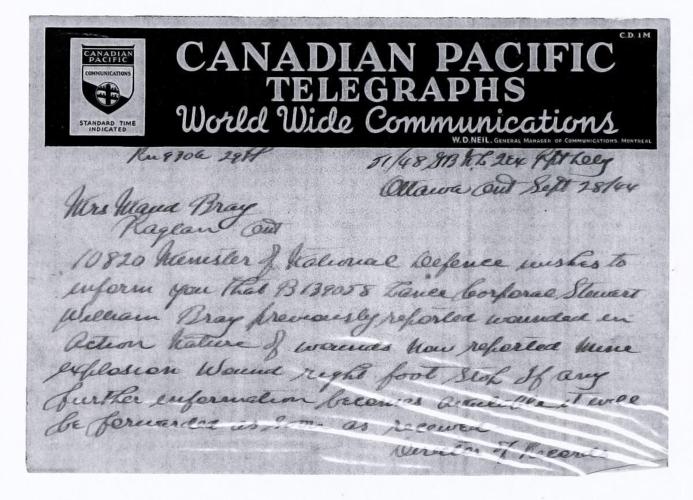 CANADIAN
PACIFIC
COMMUNICATIONS
STANDARD TIME
INDICATED
C.D. 1M
CANADIAN PACIFIC
TELEGRAPHS
World Wide Communications
W.D. NEIL, GENERAL MANAGER OF COMMUNICATIONS, MONTREAL
930a 29th
51/48
Ottawa Ont Sept 28/44
Mrs Maud Bray
Raglan Ont
10820 Minister of National Defence wishes to
inform you that B139058 Lance Corporal Stewart
William Bray previously reported wounded in
Action Nature of wounds now reported mine
explosion wound right foot Stop If any
further information becomes available it will
be forwarded as soon as received
Director of Records